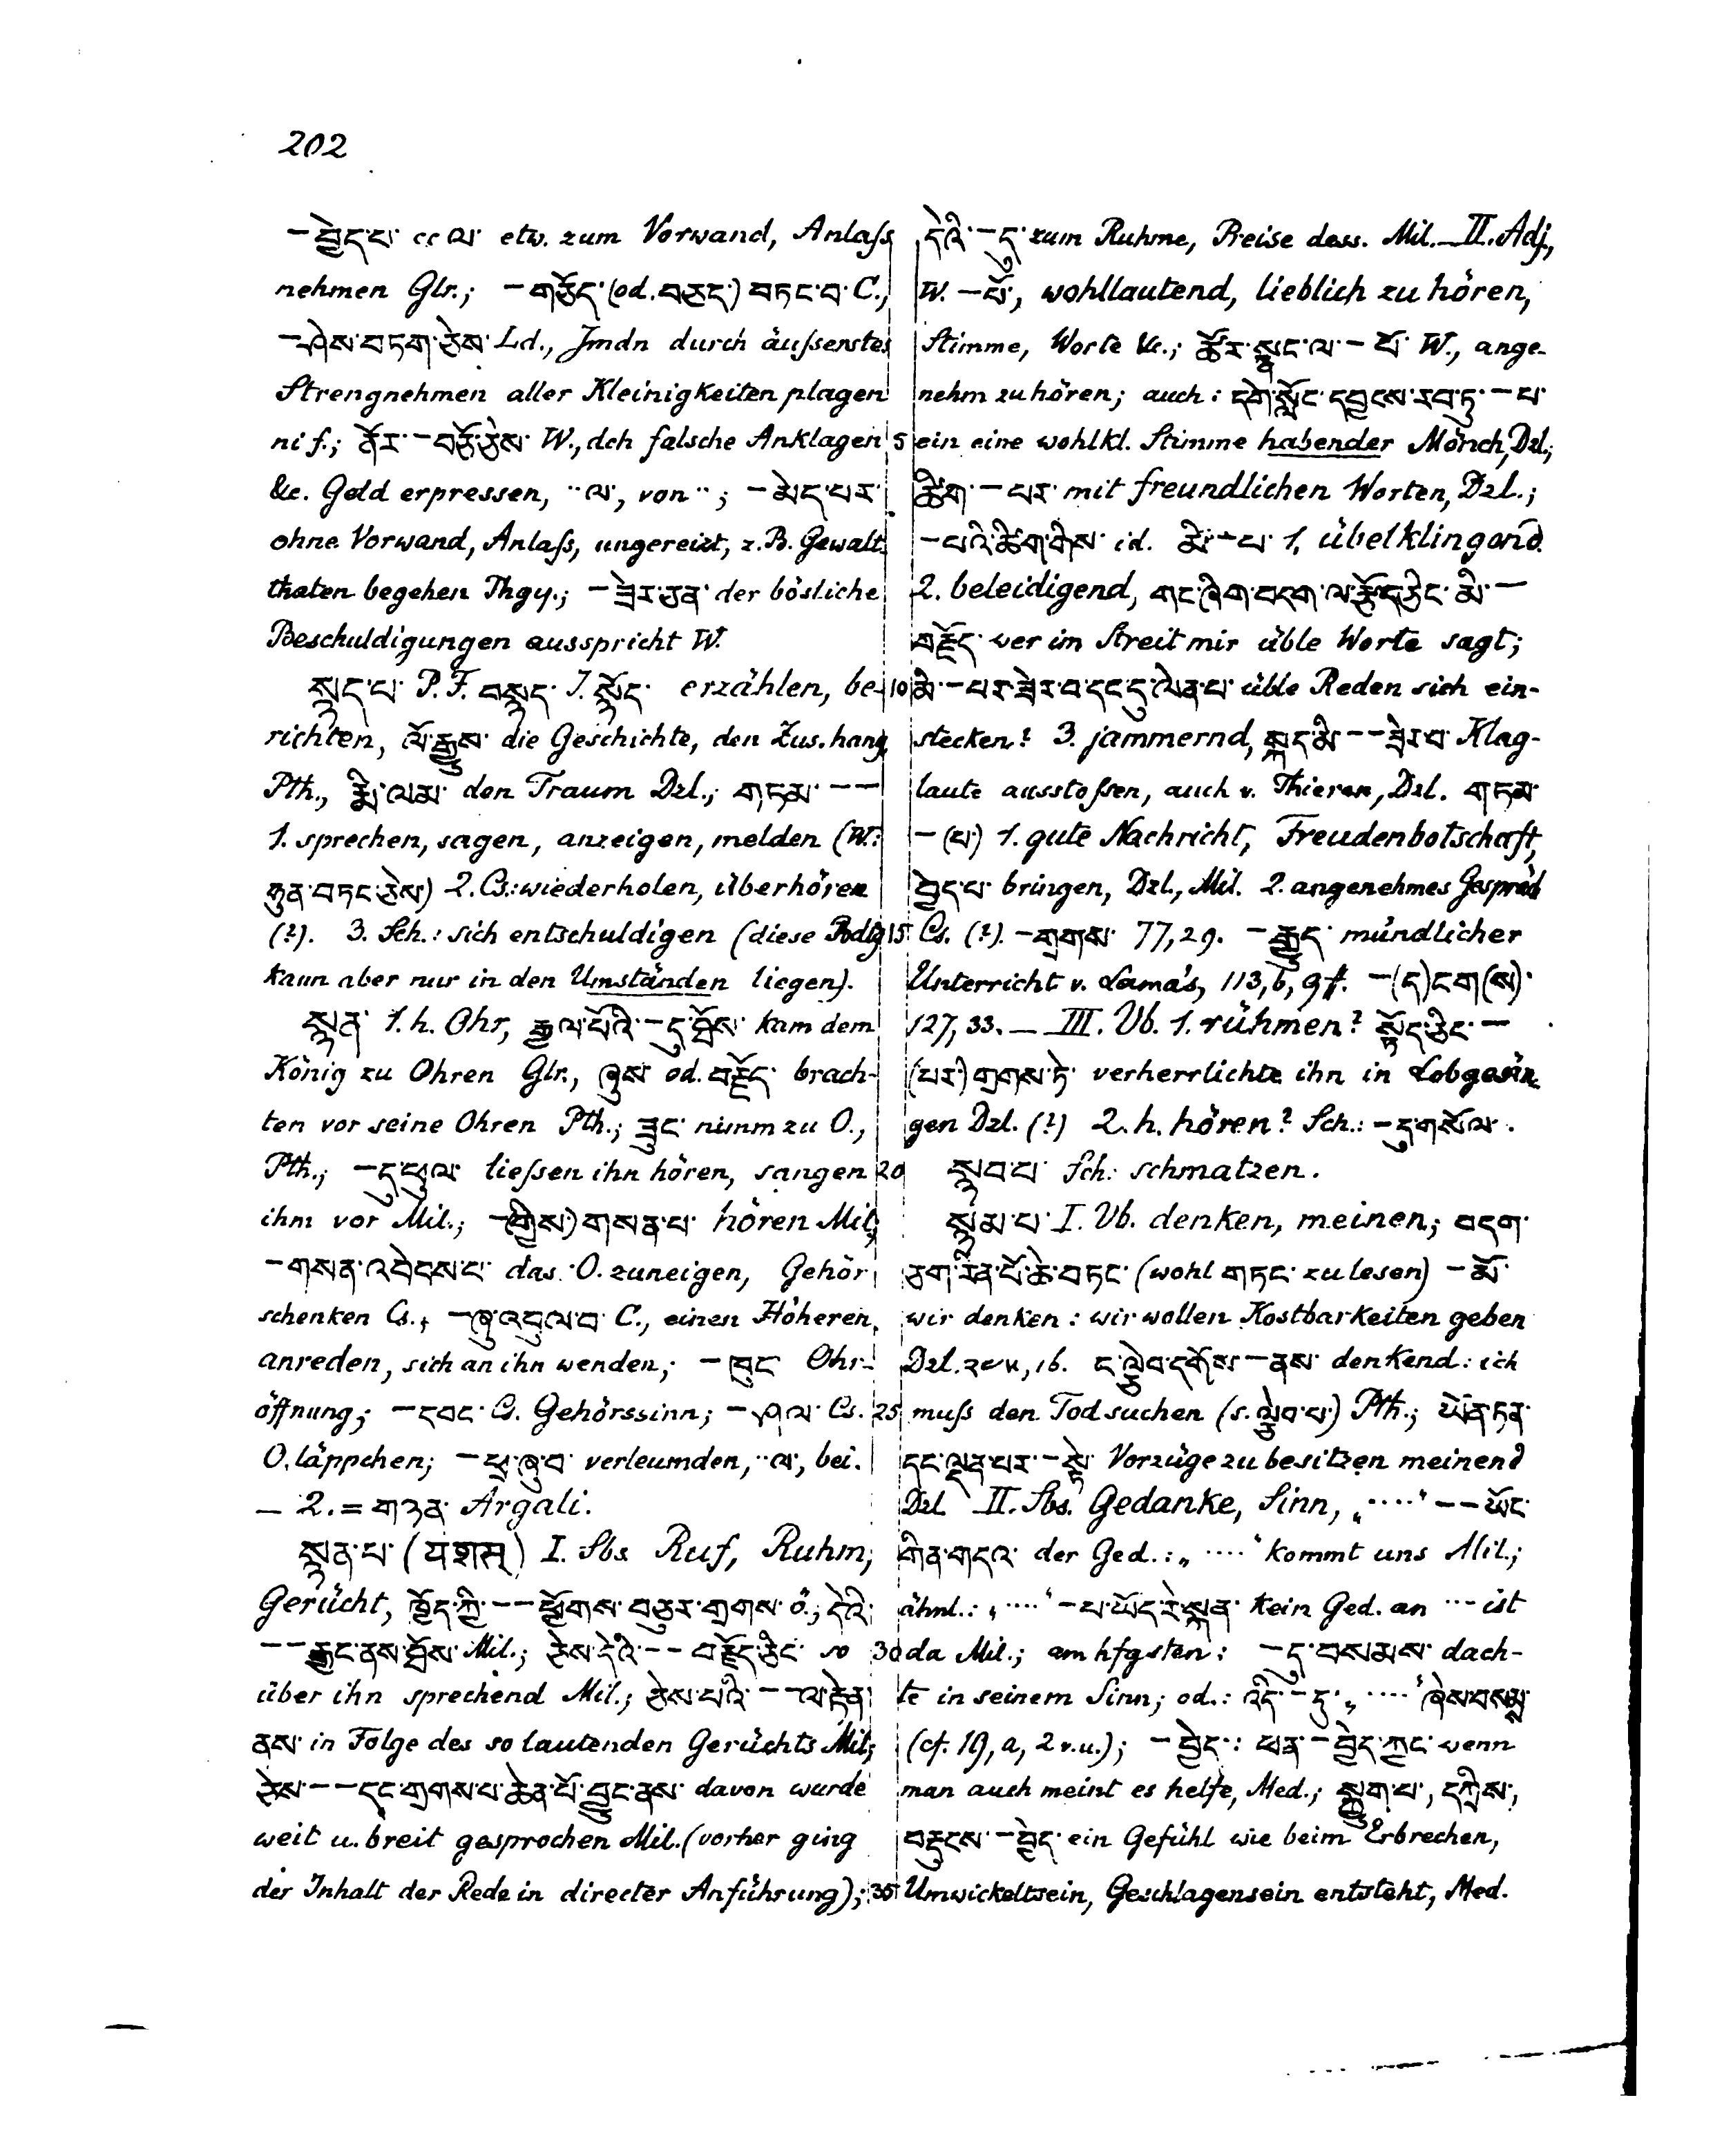 202
–བྱེད་པ་ cc ལ་ etw. zum Vorwand, Anlaß
nehmen Glr.; –གཅོད་ (od. བཅད་) བཏང་བ་ C.,
–ཤེས་བཏག་ཅེས་ Ld., Jmdn durch äußerstes
Strengnehmen aller Kleinigkeiten plagen
ni f.; ནོར་–བཅོ་ཅེས་ W., dch falsche Anklagen
&c. Geld erpressen, ¨ལ་, von ¨; –མེད་པར་
ohne Vorwand, Anlaß, ungereizt, z. B. Gewalt-
thaten begehen Thgy.; –ཟེར་ཅན་ der bösliche
Beschuldigungen ausspricht W.
སྙད་པ་ P. F. བསྙད་ I. སྙོད་ erzählen, be-
richten, ལོ་རྒྱུས་ die Geschichte, den Zus.hang
Pth., རྨི་ལམ་ den Traum Dzl.; གཏམ་ – –
1. sprechen, sagen, anzeigen, melden (W.:
ཧུན་བཏང་ཅེས་) 2. Cs.: wiederholen, überhören
(?). 3. Sch.: sich entschuldigen (diese Bedtg
kann aber nur in den Umständen liegen).
སྙན་ 1. h. Ohr, རྒྱལ་པོའི་–དུ་ཐོས་ kam dem
König zu Ohren Glr., ཞུས་ od. བརྗོད་ brach-
ten vor seine Ohren Pth.; ཟུང་ nimm zu O.,
Pth.; –དུ་ཕུལ་ ließen ihn hören, sangen
ihm vor Mil.; –(གྱིས་) གསན་པ་ hören Mil.;
–གསན་འབེབས་པ་ das O. zuneigen, Gehör
schenken Cs., –ཞུ་འབུལ་བ་ C., einen Höheren
anreden, sich an ihn wenden; –ཁུང་ Ohr-
öffnung; –དབང་ Cs. Gehörssinn; –ཤལ་ Cs.
O.läppchen; –ཕྲ་ཞུ་བ་ verleumden, ¨ལ་, bei.
– 2. = གཉན་ Argali.
སྙན་པ་ (यशस्) I. Sbs Ruf, Ruhm;
Gerücht, ཁྱོད་ཀྱི་ – – ཕྱོགས་བཅུར་གྲགས་ ö.; དེའི་
– – རྒྱང་ནས་ཐོས་ Mil.; ཅེས་དེའི་ – – བརྗོད་ཅིང་ so
über ihn sprechend Mil.; ཅེས་པའི་ – – ལ་རྟེན་
ནས་ in Folge des so lautenden Gerüchts Mil.;
ཅེས་ – – དང་གྲགས་པ་ཆེན་པོ་བྱུང་ནས་ davon wurde
weit u. breit gesprochen Mil. (vorher ging
der Inhalt der Rede in directer Anführung);
དེའི་–དུ་ zum Ruhme, Preise dess. Mil. – II. Adj.,
W. –པོ་, wohllautend, lieblich zu hören,
Stimme, Worte &c.; ཚོར་སྣང་ལ་–པོ་ W., ange-
nehm zu hören; auch: དགེ་སློང་དབྱངས་རབ་ཏུ་–པ་
5 ein eine wohlkl. Stimme habender Mönch, Dzl.;
ཚིག་–པར་ mit freundlichen Worten, Dzl.;
–པའི་ཚིག་གིས་ id. མི་–པ་ 1, übelklingend
2. beleidigend, གང་ཞིག་བདག་ལ་རྩོད་ཅིང་མི་–
བརྗོད་ wer im Streit mir üble Worte sagt;
10 མི་–པར་ཟེར་བ་དང་དུ་ལེན་པ་ üble Reden sich ein-
stecken? 3. jammernd, སྐད་མི་ – – ཟེར་བ་ Klag-
laute ausstoßen, auch v. Thieren, Dzl. གཏམ་
–(པ་) 1. gute Nachricht, Freudenbotschaft,
བྱེད་པ་ bringen, Dzl., Mil. 2. angenehmes Gespräch
15 Cs. (?). –གྲགས་ 77,29. –རྒྱུད་ mündlicher
Unterricht v. Lama's, 113,b,9 f. –(ད)ངག(ས)་
127, 33. – III. Vb. 1. rühmen? སྟོད་ཅིང་–
(པར་) གྲགས་ཏེ་ verherrlichte ihn in Lobgesän-
gen Dzl. (?) 2. h. hören? Sch.: –དུ་གསོལ་.
20 སྙབ་པ་ Sch.: schmatzen.
སྙམ་པ་ I. Vb. denken, meinen; བདག་
ཅག་རིན་པོ་ཆེ་བཏང་ (wohl གཏང་ zu lesen) –མོ་
wir denken: wir wollen Kostbarkeiten geben
Dzl. ༢༠༥, 16. ང་ལྕེབ་དགོས་–ནས་ denkend: ich
25 muß den Tod suchen (s. ལྕེབ་པ་) Pth.; ཡོན་ཏན་
དང་ལྡན་པར་–སྟེ་ Vorzüge zu besitzen meinend
Dzl II. Sbs. Gedanke, Sinn, „····“ – – ཡོང་
གིན་གདའ་ der Ged.: „····“ kommt uns Mil.;
ähnl.: „····“ –པ་ཡོད་རེ་སྐན་ kein Ged. an ··· ist
30 da Mil.; am hfgsten: –དུ་བསམས་ dach-
te in seinem Sinn; od.: འདི་–དུ་ „····“ ཞེས་བསམ་
(cf. 19, a, 2 v. u.); –བྱེད་: ཕན་–བྱེད་ཀྱང་ wenn
man auch meint es helfe, Med.; སྐྱུག་པ་, དཀྲིས་,
བརྡུངས་–བྱེད་ ein Gefühl wie beim Erbrechen,
35 Umwickeltsein, Geschlagensein entsteht, Med.